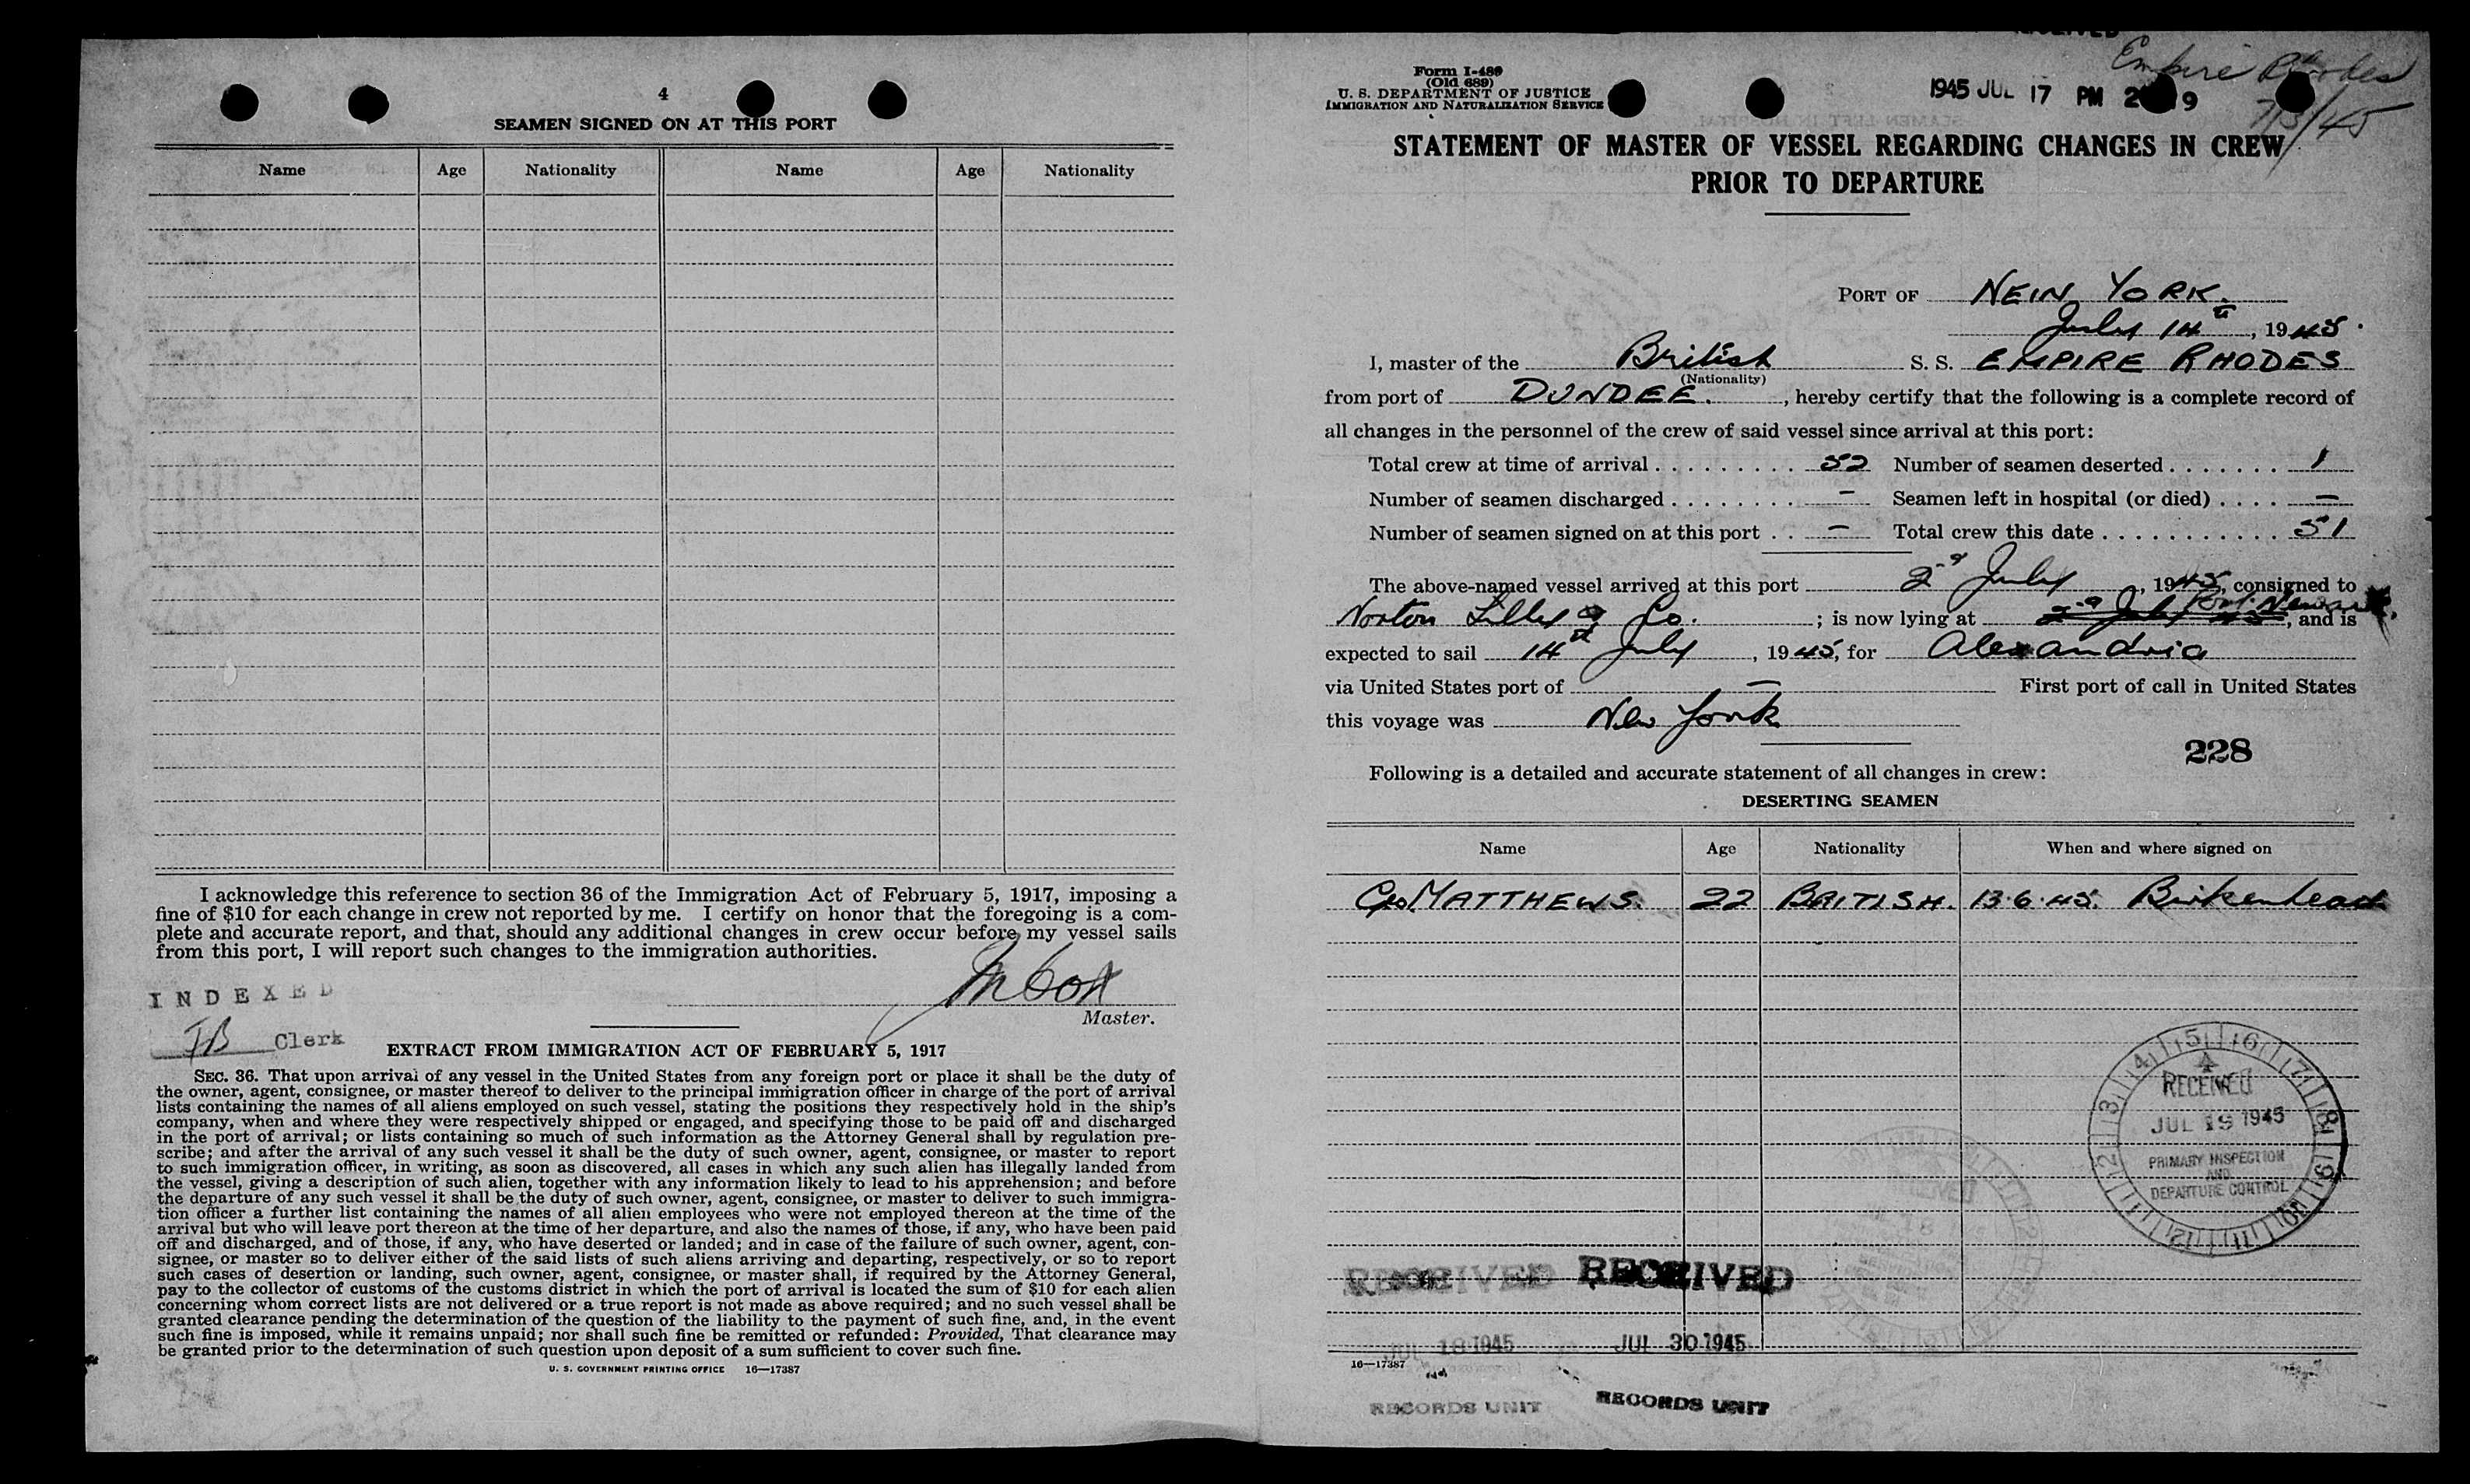 4
SEAMEN SIGNED ON AT THIS PORT
Name Age Nationality Name Age Nationality
I acknowledge this reference to section 36 of the Immigration Act of February 5, 1917, imposing a
fine of $10 for each change in crew not reported by me. I certify on honor that the foregoing is a com-
plete and accurate report, and that, should any additional changes in crew occur before my vessel sails
from this port, I will report such changes to the immigration authorities.
INDEXED
Master.
Clerk
EXTRACT FROM IMMIGRATION ACT OF FEBRUARY 5, 1917
SEC. 36. That upon arrival of any vessel in the United States from any foreign port or place it shall be the duty of
the owner, agent, consignee, or master thereof to deliver to the principal immigration officer in charge of the port of arrival
lists containing the names of all aliens employed on such vessel, stating the positions they respectively hold in the ship's
company, when and where they were respectively shipped or engaged, and specifying those to be paid off and discharged
in the port of arrival; or lists containing so much of such information as the Attorney General shall by regulation pre-
scribe; and after the arrival of any such vessel it shall be the duty of such owner, agent, consignee, or master to report
to such immigration officer, in writing, as soon as discovered, all cases in which any such alien has illegally landed from
the vessel, giving a description of such alien, together with any information likely to lead to his apprehension; and before
the departure of any such vessel it shall be the duty of such owner, agent, consignee, or master to deliver to such immigra-
tion officer a further list containing the names of all alien employees who were not employed thereon at the time of the
arrival but who will leave port thereon at the time of her departure, and also the names of those, if any, who have been paid
off and discharged, and of those, if any, who have deserted or landed; and in case of the failure of such owner, agent, con-
signee, or master so to deliver either of the said lists of such aliens arriving and departing, respectively, or so to report
such cases of desertion or landing, such owner, agent, consignee, or master shall, if required by the Attorney General,
pay to the collector of customs of the customs district in which the port of arrival is located the sum of $10 for each alien
concerning whom correct lists are not delivered or a true report is not made as above required; and no such vessel shall be
granted clearance pending the determination of the question of the liability to the payment of such fine, and, in the event
such fine is imposed, while it remains unpaid; nor shall such fine be remitted or refunded: Provided, That clearance may
be granted prior to the determination of such question upon deposit of a sum sufficient to cover such fine.
U. S. GOVERNMENT PRINTING OFFICE 16—17387
RECEIVED
Empire Rhodes
Form I-489
(Old 689)
U. S. DEPARTMENT OF JUSTICE
IMMIGRATION AND NATURALIZATION SERVICE
1945 JUL 17 PM
STATEMENT OF MASTER OF VESSEL REGARDING CHANGES IN CREW
PRIOR TO DEPARTURE
PORT OF NEW YORK.
July 14th, 1945.
I, master of the British S. S. EMPIRE RHODES
(Nationality)
from port of DUNDEE., hereby certify that the following is a complete record of
all changes in the personnel of the crew of said vessel since arrival at this port:
Total crew at time of arrival 52 Number of seamen deserted 1
Number of seamen discharged — Seamen left in hospital (or died) —
Number of seamen signed on at this port — Total crew this date 51
The above-named vessel arrived at this port 2nd July, 1945, consigned to
Norton Lilly & Co.; is now lying at Port Newark, and is
expected to sail 14th July, 1945, for Alexandria
via United States port of — First port of call in United States
this voyage was New York
228
Following is a detailed and accurate statement of all changes in crew:
DESERTING SEAMEN
Name Age Nationality When and where signed on
Geo. MATTHEWS. 22 BRITISH. 13.6.45. Birkenhead
RECEIVED
JUL 19 1945
PRIMARY INSPECTION
AND
DEPARTURE CONTROL
RECEIVED RECEIVED
JUL 18 1945 JUL 30 1945
16—17387
RECORDS UNIT RECORDS UNIT